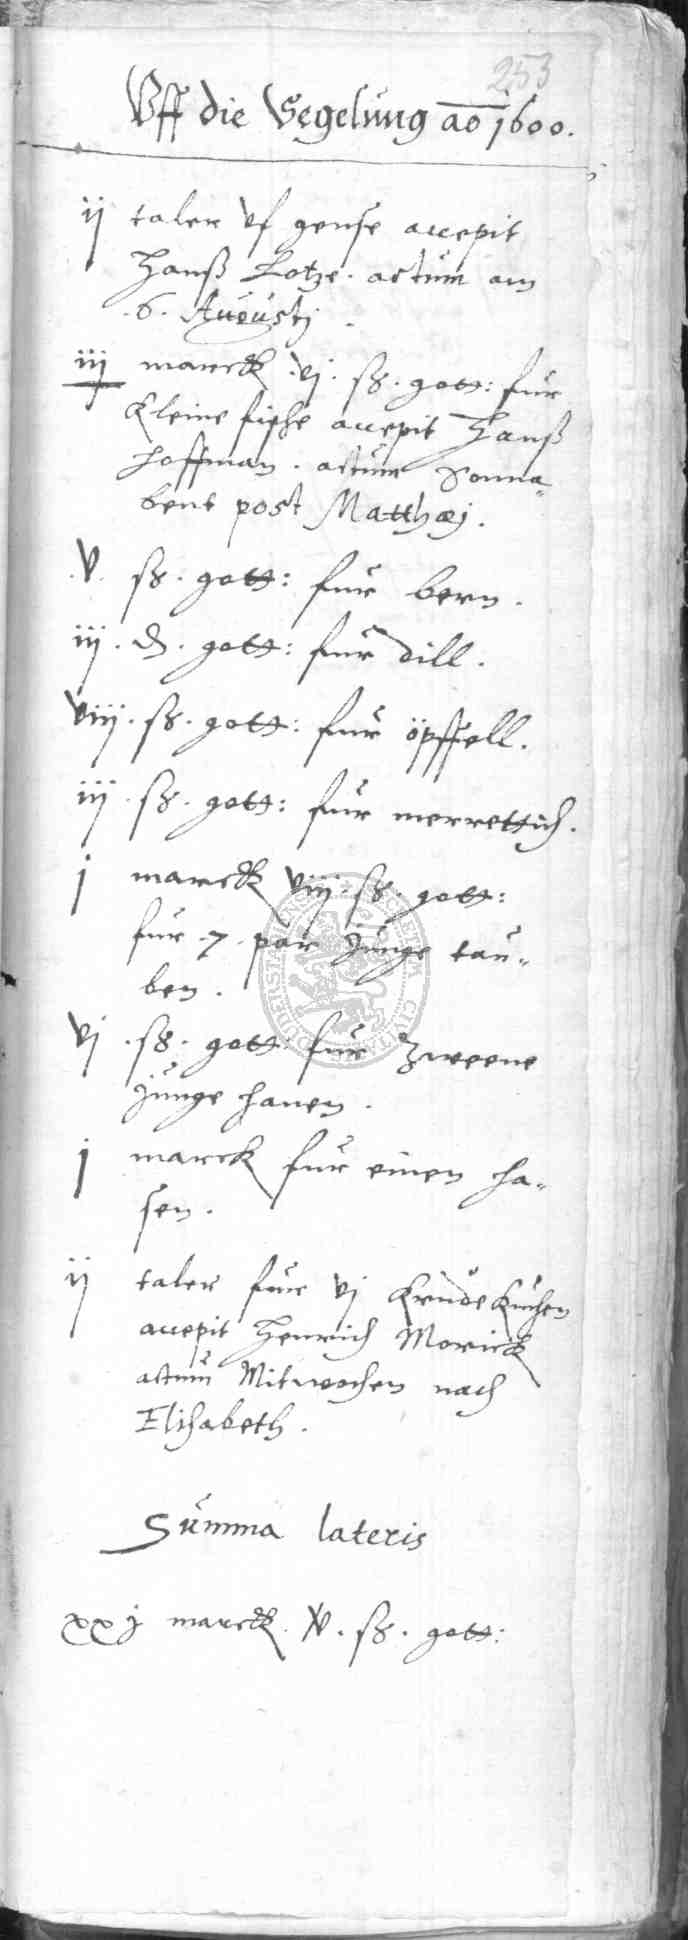 253
Vff die Vegelung ao 1600.
ij taler vf gense accepit
Hanß Lotze. actum am
.6. Augustj.
iij marck .vj. ß. gott: fur
kleine fische accepit Hanß
Hoffman. actum Sonna-
bent post Matthæj.
.v. ß. gott: fur bern.
iij. d. gott: fur dill.
viij. ß. gott: fur öpffell.
iij. ß. gott: fur merrettich.
j marck viij. ß. gott:
fur .7. par junge tau-
ben.
vj. ß. gott: fur zweene
junge hanen.
j marck fur einen ha-
sen.
ij taler fur vj Krudekuchen
accepit Henrich Morick
actum Mitwochen nach
Elisabeth.
Summa lateris
xxj marck. v. ß. gott: